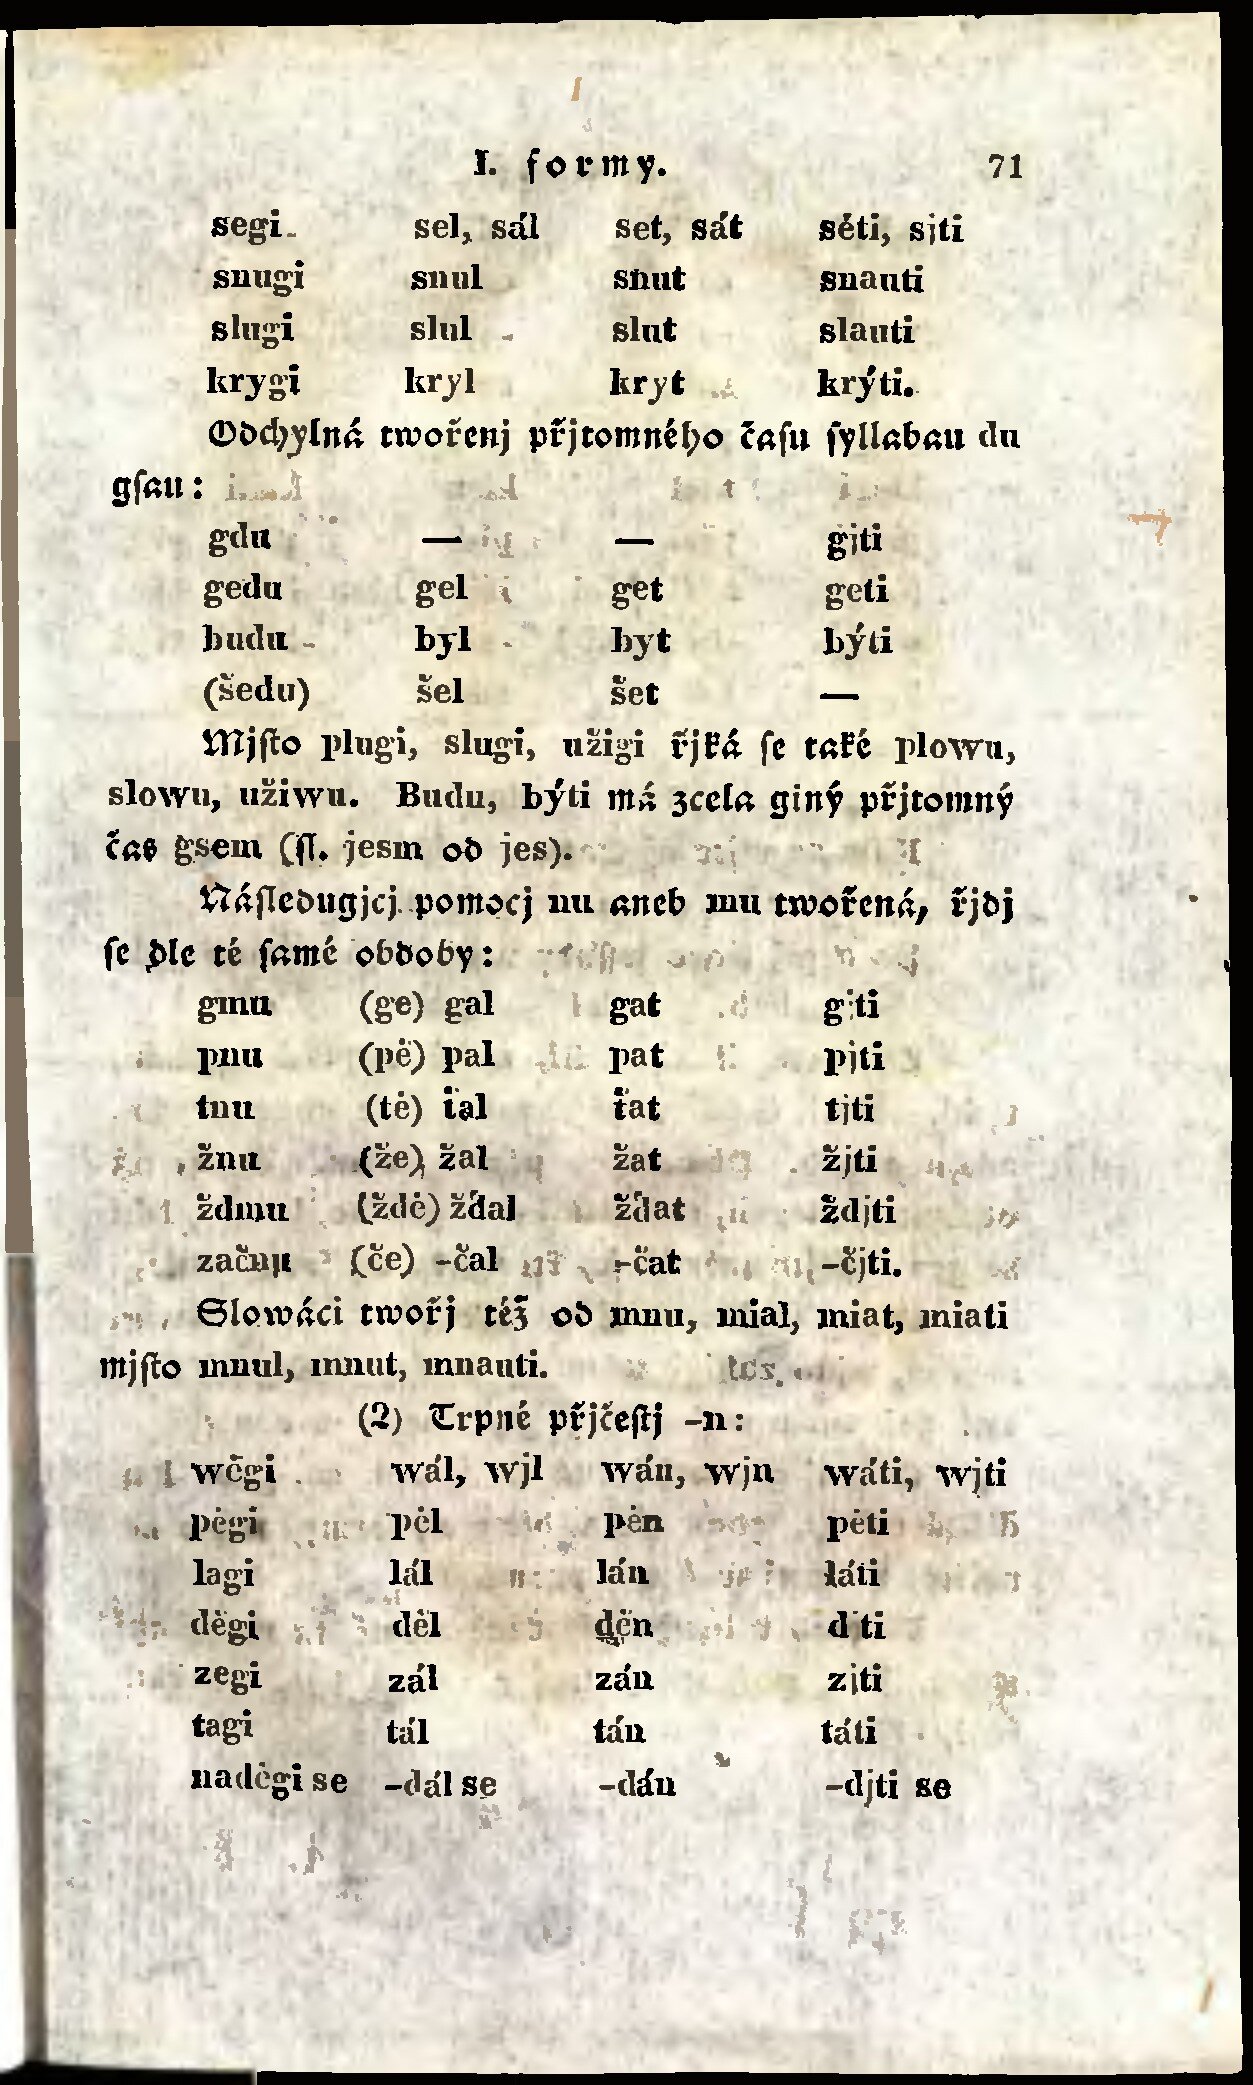 I. formy. 71
segi sel, sál set, sát séti, sjti
snugi snul snut snauti
slugi slul slut slauti
krygi kryl kryt krýti.
Odchylná twořenj přjtomného času syllabau du
gsau:
gdu — — gjti
gedu gel get geti
budu byl byt býti
(šedu) šel šet —
Mjsto plugi, slugi, užigi řjká se také plowu,
slowu, užiwu. Budu, býti má zcela giný přjtomný
čas gsem (sl. jesm od jes).
Následugjcj pomocj nu aneb mu twořená, řjdj
se dle té samé obdoby:
gmu (ge) gal gat gjti
pnu (pě) pal pat pjti
tnu (tě) ťal ťat tjti
žnu (že) žal žat žjti
ždmu (ždě) žďal žďat ždjti
začnu (če) -čal -čat -čjti.
Slowáci twořj též od mnu, mial, miat, miati
mjsto mnul, mnut, mnauti.
(2) Trpné přjčestj -n:
wěgi wál, wjl wán, wjn wáti, wjti
pěgi pěl pěn pěti
lagi lál lán láti
děgi děl děn djti
zegi zál zán zjti
tagi tál tán táti
naděgi se -dál se -dán -djti se